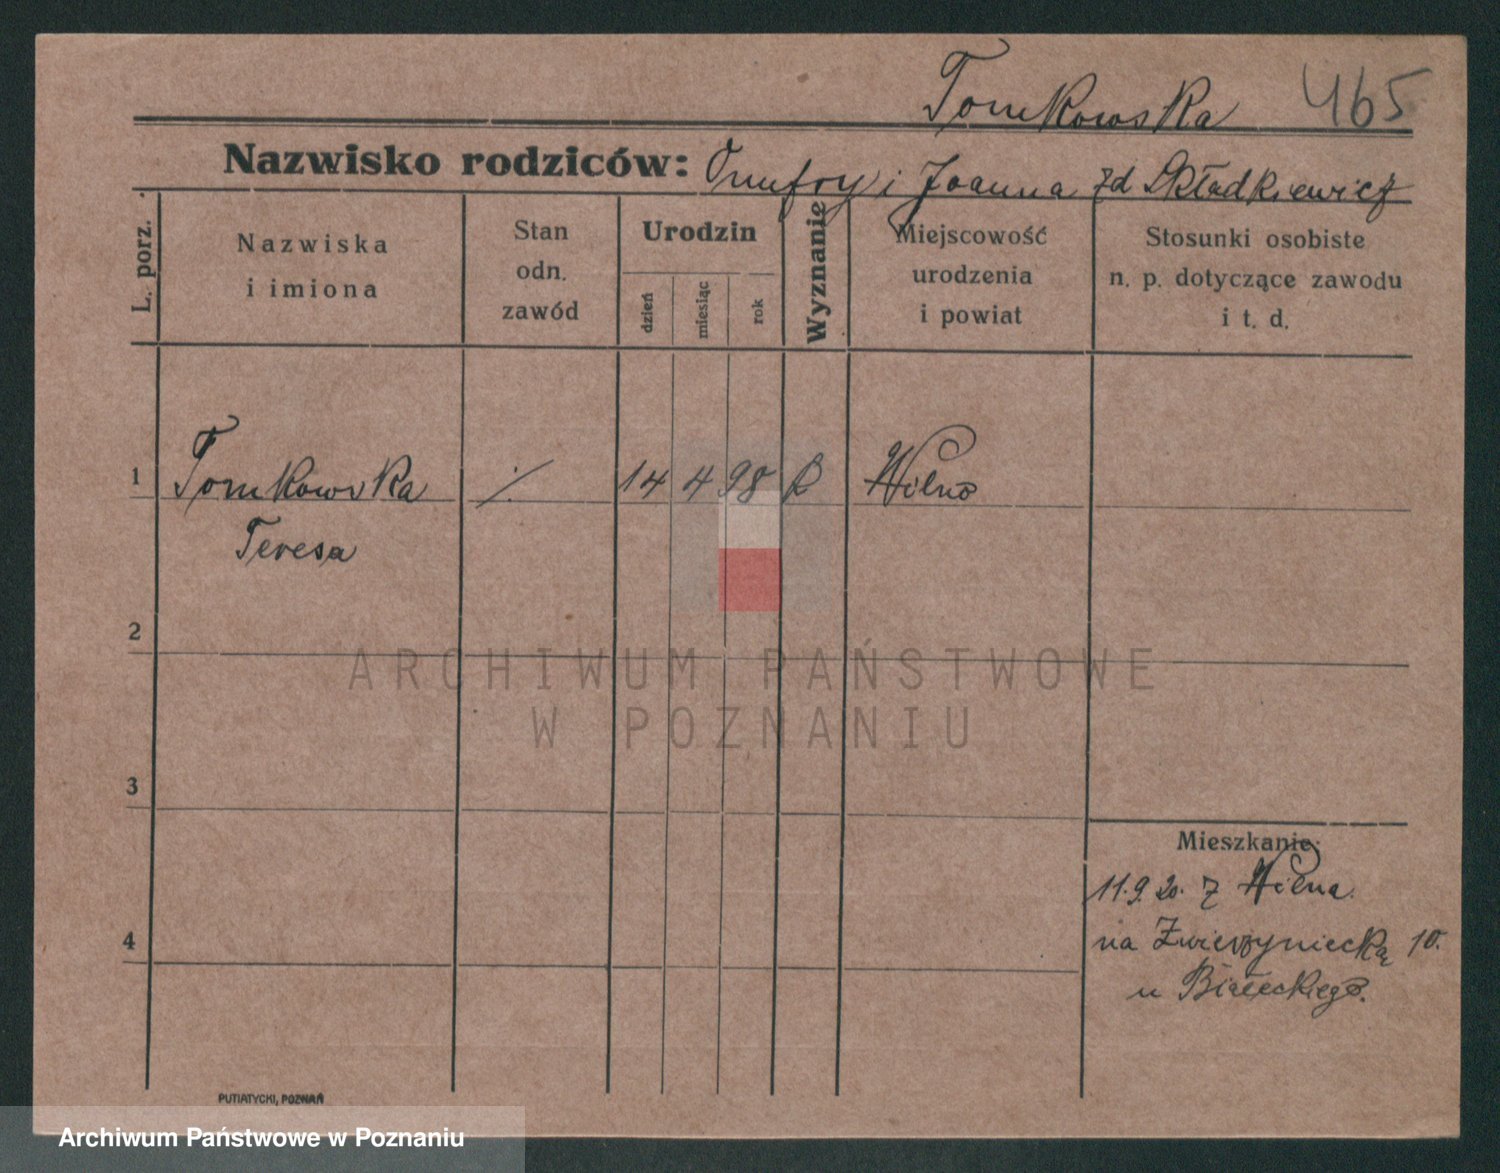 Tomkowska 465
Nazwisko rodziców: Onufry i Joanna zd Składkiewicz
L. porz.
Nazwiska
i imiona
Stan
odn.
zawód
Urodzin
dzień
miesiąc
rok
Wyznanie
Miejscowość
urodzenia
i powiat
Stosunki osobiste
n. p. dotyczące zawodu
i t. d.
1 Tomkowska ·/· 14 4 98 R Wilno
Teresa
2
ARCHIWUM PAŃSTWOWE
W POZNANIU
3
Mieszkanie:
11.9.20. z Wilna
4 na Zwierzyniecką 10.
u Białeckiego.
PUTIATYCKI, POZNAŃ
Archiwum Państwowe w Poznaniu